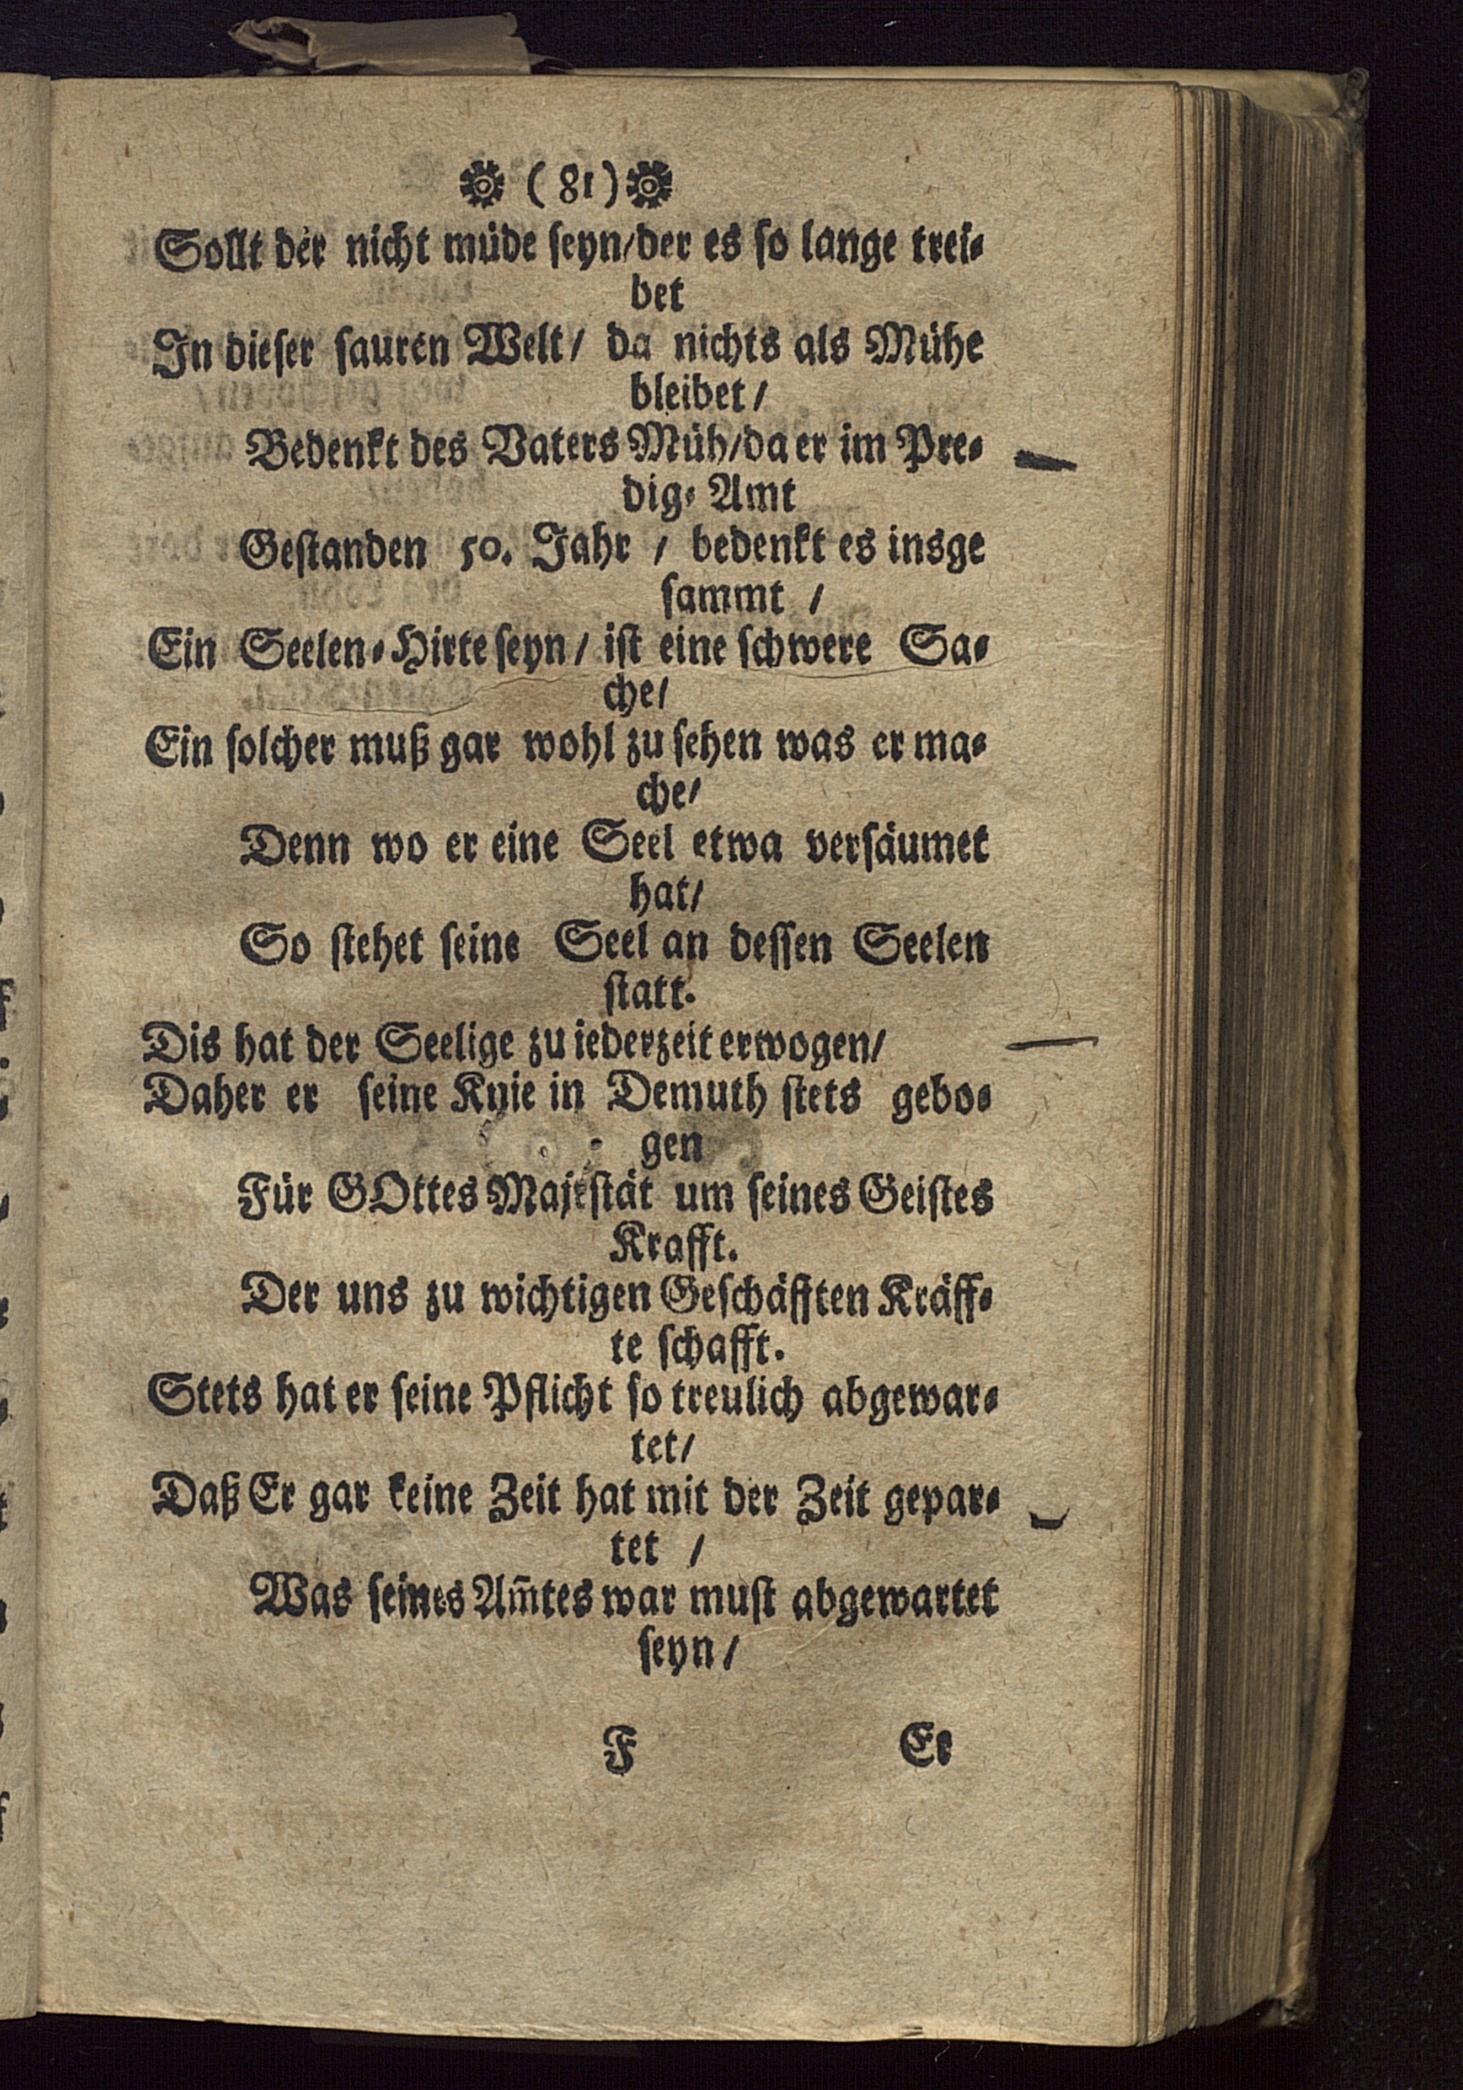 ( 81 )
Sollt der nicht müde seyn/der es so lange trei-
bet
In dieser sauren Welt/ da nichts als Mühe
bleibet/
Bedenkt des Vaters Müh/da er im Pre-
dig-Amt
Gestanden 50. Jahr / bedenkt es insge
sammt /
Ein Seelen-Hirte seyn/ ist eine schwere Sa-
che/
Ein solcher muß gar wohl zu sehen was er ma-
che/
Denn wo er eine Seel etwa versäumet
hat/
So stehet seine Seel an dessen Seelen
statt.
Dis hat der Seelige zu iederzeit erwogen/
Daher er seine Knie in Demuth stets gebo-
gen
Für GOttes Majestät um seines Geistes
Krafft.
Der uns zu wichtigen Geschäfften Kräff-
te schafft.
Stets hat er seine Pflicht so treulich abgewar-
tet/
Daß Er gar keine Zeit hat mit der Zeit gepar-
tet /
Was seines Am̃tes war must abgewartet
seyn/
F Er